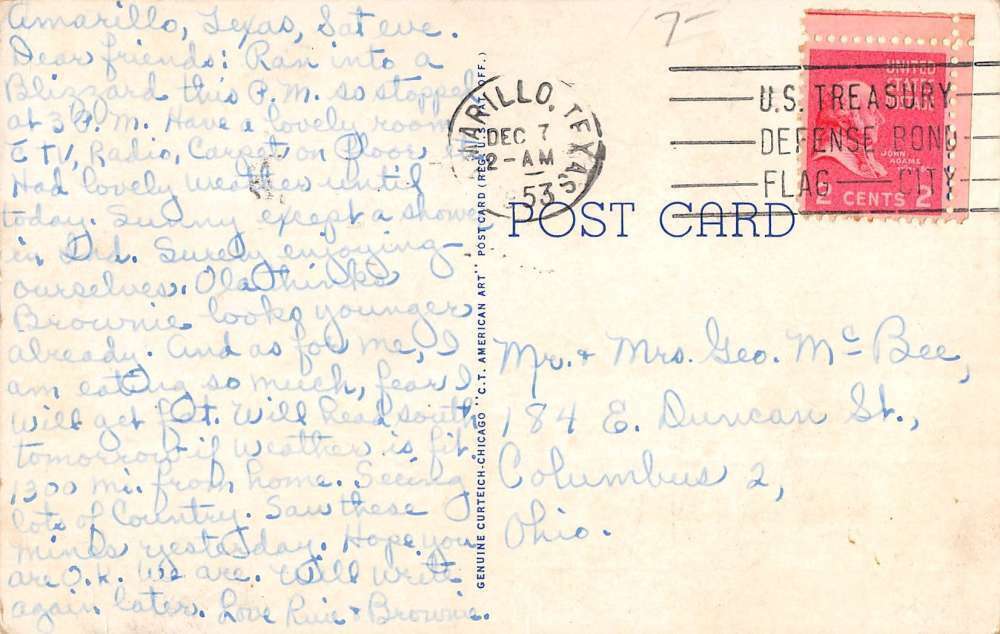 Amarillo, Texas, Sat eve.
Dear friends: Ran into a
Blizzard this P.M. so stopped
at 3 P.M. Have a lovely room
TV, Radio, Carpet on floor,
Had lovely weather until
today. Sunny except a shower
in Ind. Surely enjoying
ourselves. Ola thinks
Brownie looks younger
already. And as for me, I
am eating so much, fear I
will get fat. Will head south
tomorrow if weather is fit.
1300 mi. from home. Seeing
lots of Country. Saw these
mines yesterday. Hope you
are O.K. We are. Will write
again later. Love & Brownie.
GENUINE CURTEICH-CHICAGO "C.T. AMERICAN ART" POST CARD (REG. U.S. PAT. OFF.)
7-
AMARILLO, TEXAS
DEC 7
2-AM
53
U.S. TREASURY
DEFENSE BOND
FLAG CITY
UNITED
STATES
JOHN
ADAMS
2 CENTS 2
POST CARD
Mr. & Mrs. Geo. McBee,
184 E. Duncan St.,
Columbus 2,
Ohio.